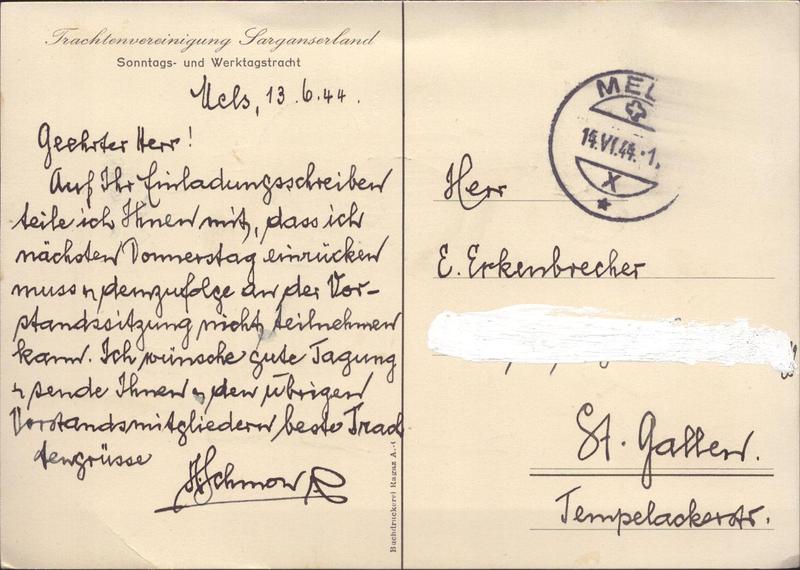 Trachtenvereinigung Sarganserland
Sonntags- und Werktagstracht
Mels, 13.6.44.
Geehrter Herr!
Auf Ihr Einladungsschreiben
teile ich Ihnen mit, dass ich
nächsten Donnerstag einrücken
muss u demzufolge an der Vor-
standssitzung nicht teilnehmen
kann. Ich wünsche gute Tagung
u sende Ihnen u den übrigen
Vorstandsmitgliedern beste Trach
tengrüsse
Buchdruckerei Ragaz A.-
MEL
14.VI.44.-1.
X
Herr
E. Erkenbrecher
St. Gallen.
Tempelackerstr.